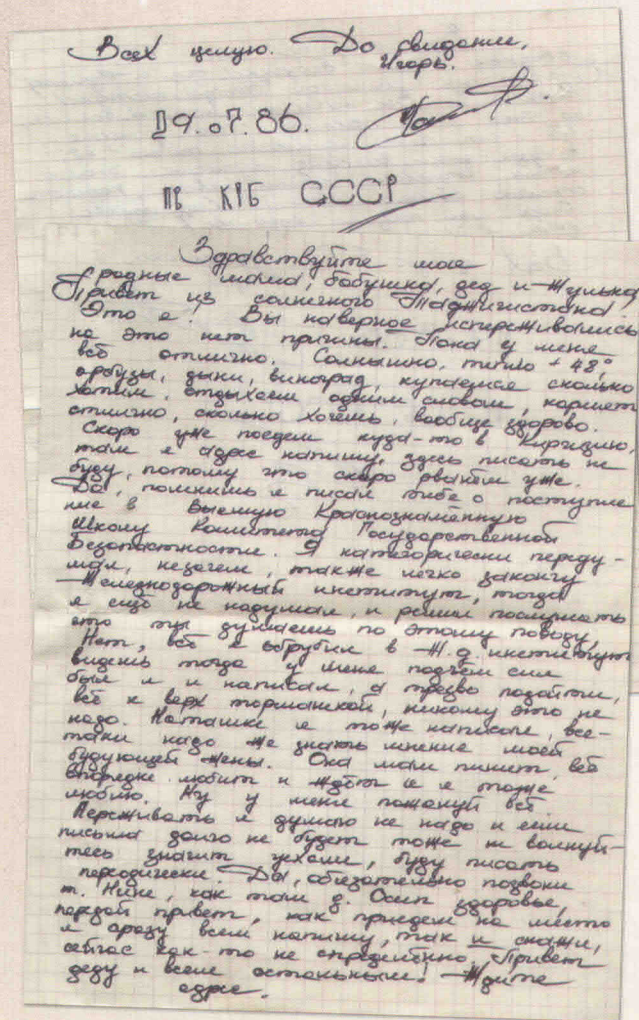 Всех целую. До свидание,
Игорь.
19.07.86.
ПВ КГБ СССР
Здравствуйте мое
родные мама, бабушка, дед и Жулька
Привет из солнечного Таджигистана,
Это я! Вы наверное испереживались
но это нет причины. Пока у меня
всё отлично. Солнышко, тепло +48°,
арбузы, дыни, виноград, купаемся сколько
хотим, отдыхаем одним словом, кормят
отлично, сколько хочешь, вообще здорово.
Скоро уже поедем куда-то в Киргизию,
там я адрес напишу, здесь писать не
буду, потому что скоро рванём уже.
Да, помнишь я писал тебе о поступле
ние в Высшую Краснознамённую
школу Комитета Государственной
Безопастности. Я категорически переду-
мал, незачем, также легко закончу
Железнодорожный институт, тогда
я ещё не надумал, и решил послушать
что ты думаешь по этому поводу,
Нет, всё я обрубил в Ж.д. институт
видишь тогда у меня подъём сил
был я и написал, а трезво подойти,
всё к верх тормашкой, никому это не
надо. Наташке я тоже написал, все-
таки надо же знать мнение моей
будующей жены. Она мам пишет, всё
впорядке любит и ждёт и я тоже
люблю. Ну у меня пожалуй всё
Переживать я думаю не надо и если
письма долго не будет тоже не волнуй-
тесь значит уехали, буду писать
переодически. Да, обязательно позвони
т. Нине, как там д. Осип здоровье,
передай привет, как приедем на место
я сразу всем напишу, так и скажи,
сейчас как-то не определённо. Привет
деду и всем остальным! Ждите
адрес.